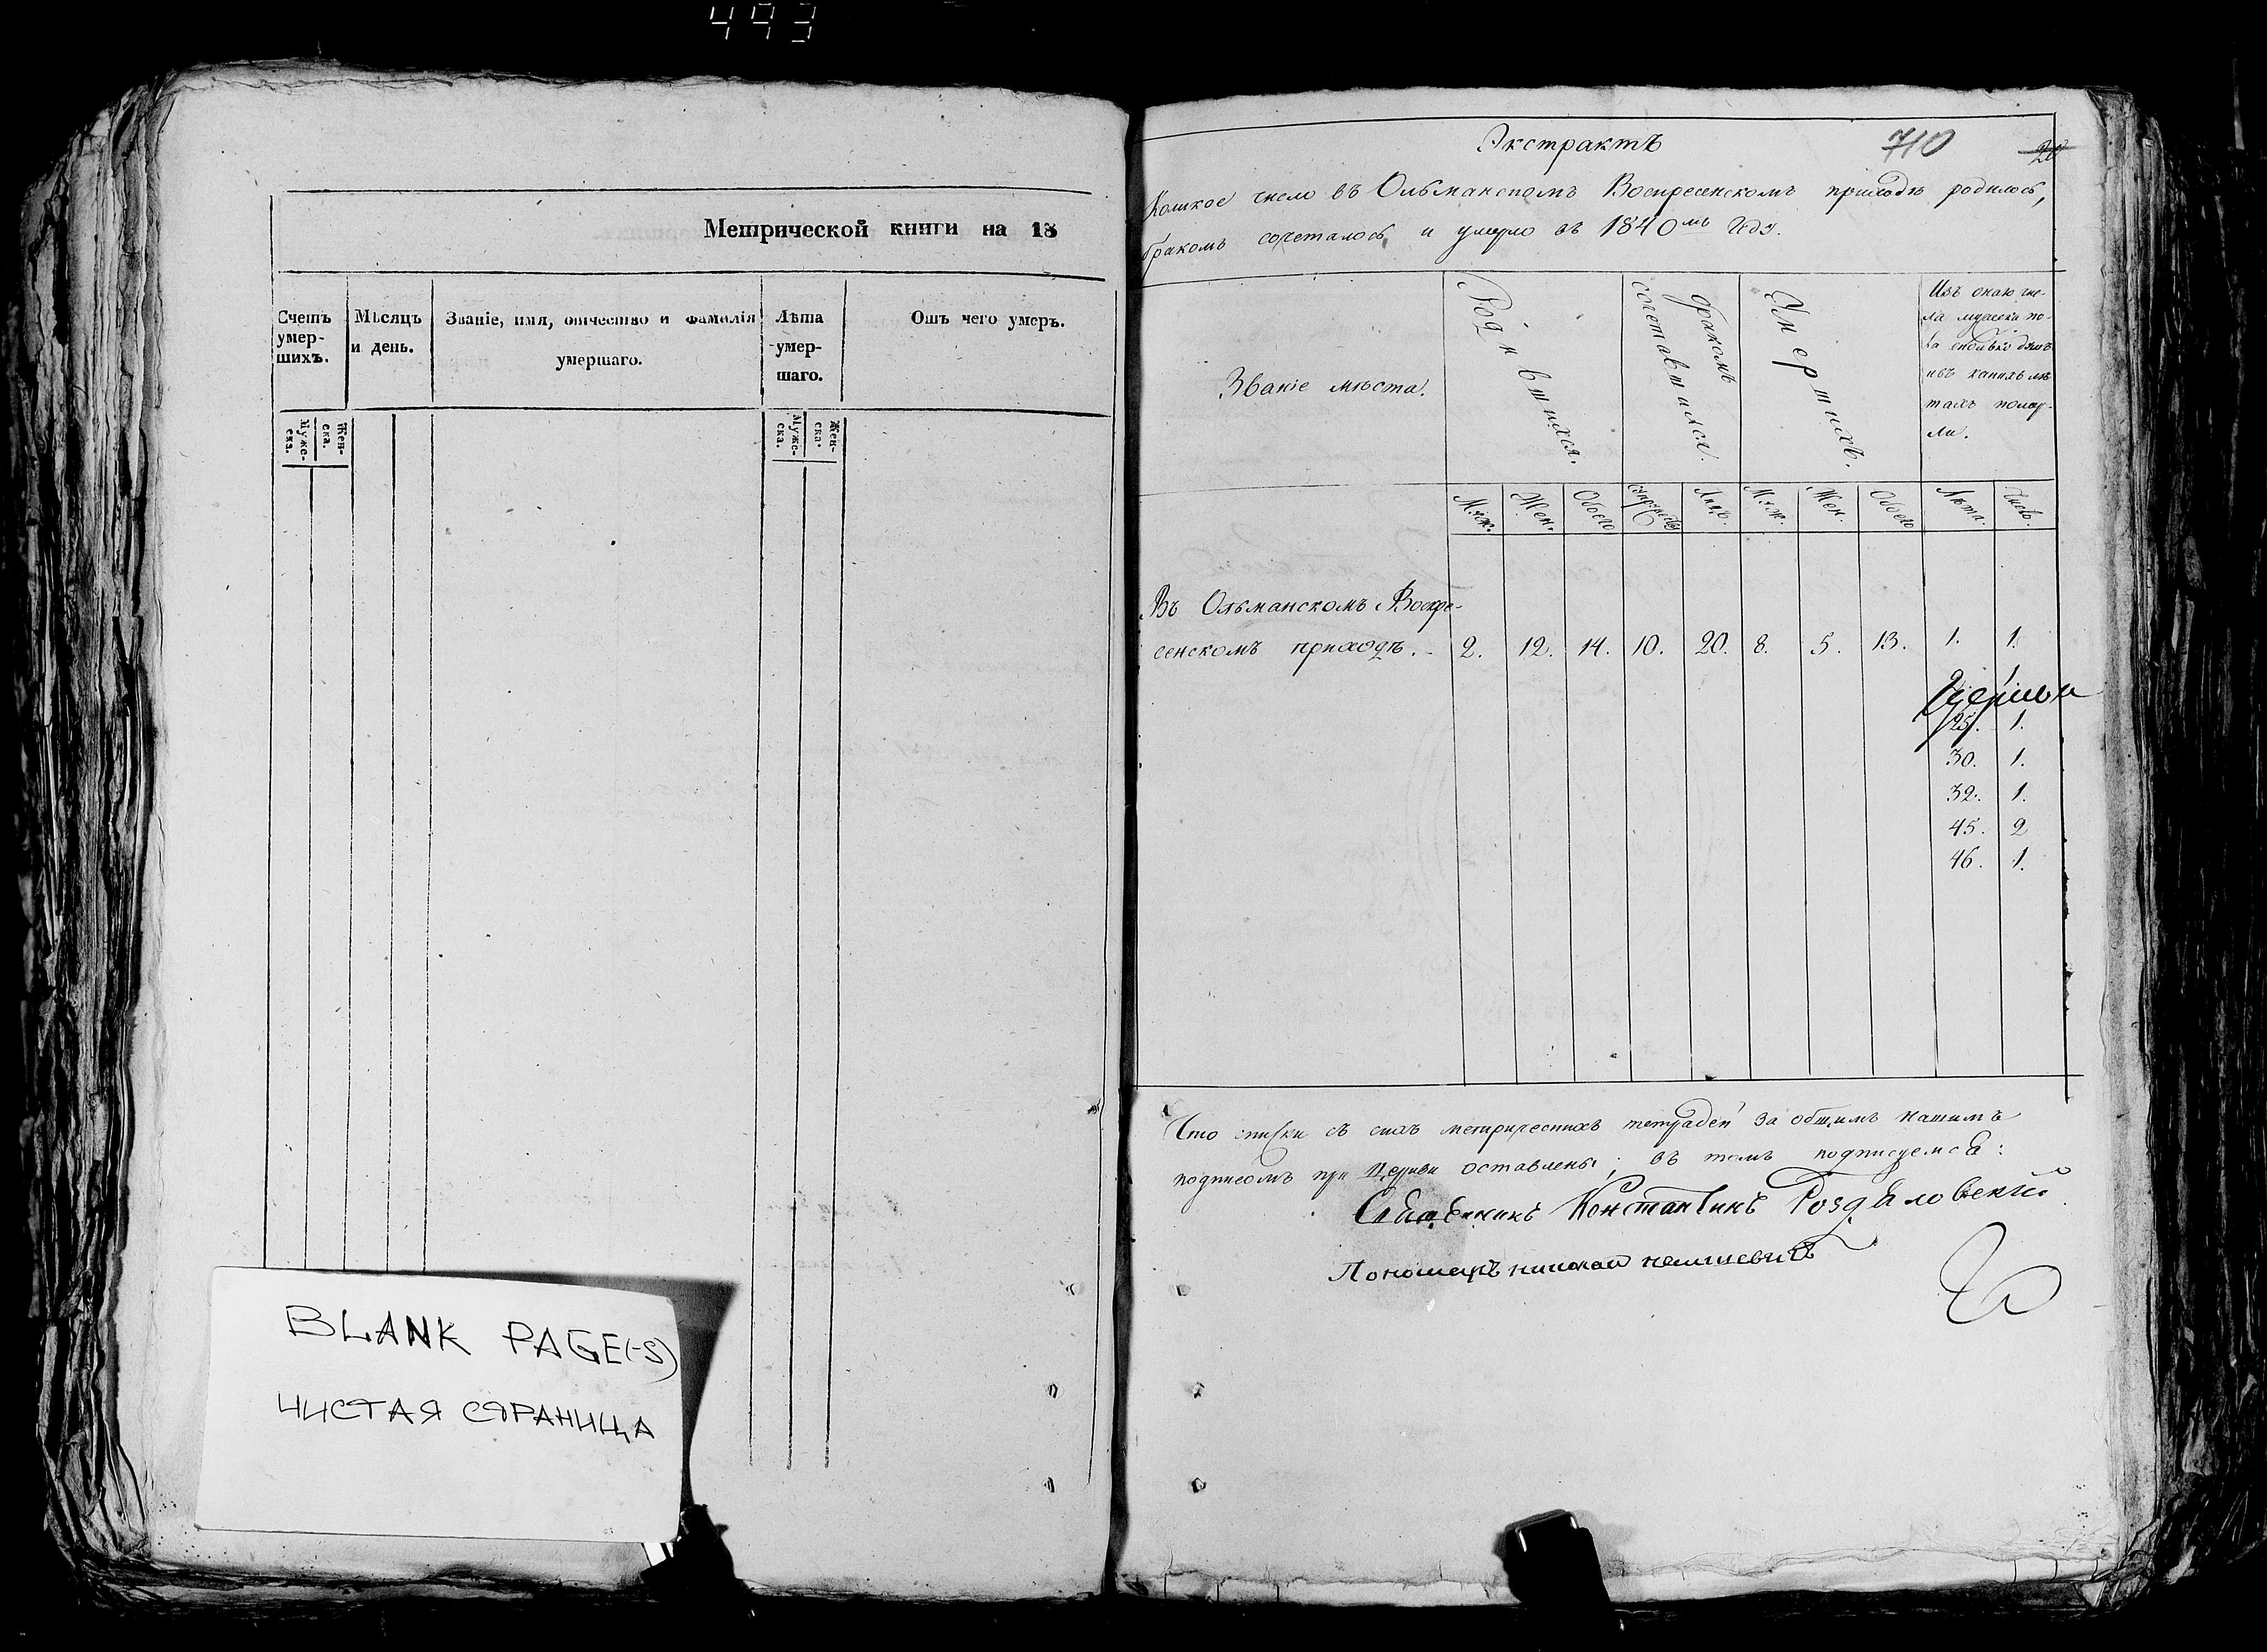 493
Метрической книги на 18
Счетъ умер-шихъ.
Мѣсяцъ и день.
Званіе, имя, отчество и фамилія умершаго.
Лѣта умер-шаго.
Отъ чего умеръ.
Муже-ска.
Жен-ска.
Муже-ска.
Жен-ска.
BLANK PAGE(-S)
ЧИСТАЯ СТРАНИЦА
Экстрактъ
710
20
Коликое число въ Ольманскомъ Воскресенскомъ приходѣ родилось,
бракомъ сочеталось, и умерло въ 1840мъ году.
Званіе мѣста.
Родившихся.
бракомъ
сочетавшихся.
Умершихъ.
Изъ онаго чис-
ла мужеска по-
ла сколько
ихъ какихъ лѣ
тахъ помер-
ли.
Муж.
Жен.
Обоего
Лицъ.
Муж.
Жен.
Обоего
Лѣта.
Число.
Въ Ольманскомъ Воскре-
сенскомъ приходѣ. 2. 12. 14. 10. 20. 8. 5. 13. 1. 1.
25. 1.
30. 1.
32. 1.
45. 2
46. 1.
Что списки съ сихъ метрическихъ тетрадей за общимъ нашимъ
подписомъ при Церкви оставлены; въ томъ подписуемся:
Священникъ Константинъ Роздяловскій
Пономаръ николай